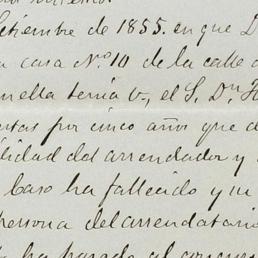 Setiembre de 1855. en que D
casa Nº 10 de la calle
en ella tenia V., el S. Dn. 
por cinco años que
lidad del arrendador y
Caso ha fallecido y su
persona del arrendatario
ha pasado al